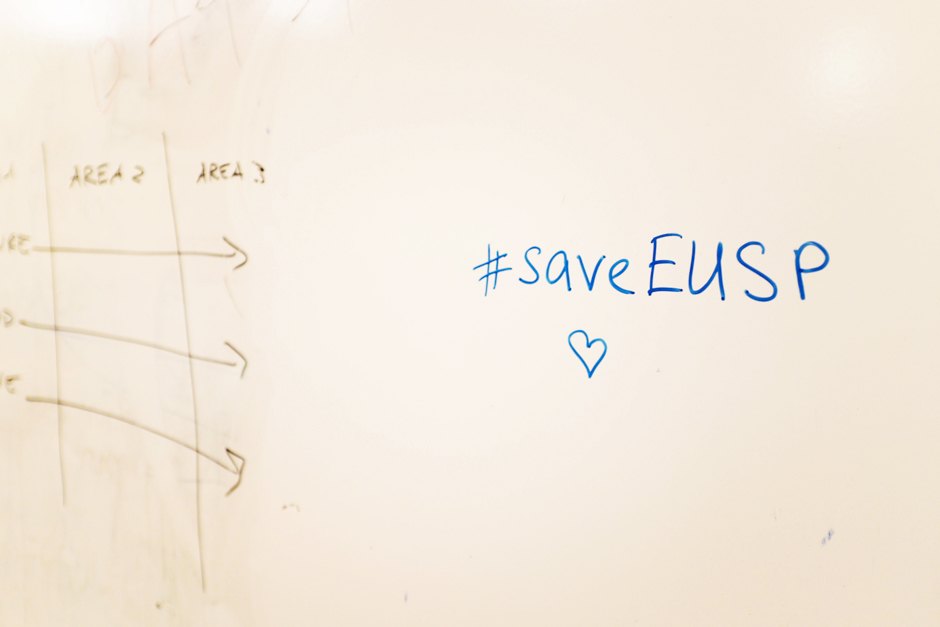 AREA 2 AREA 3
#saveEUSP